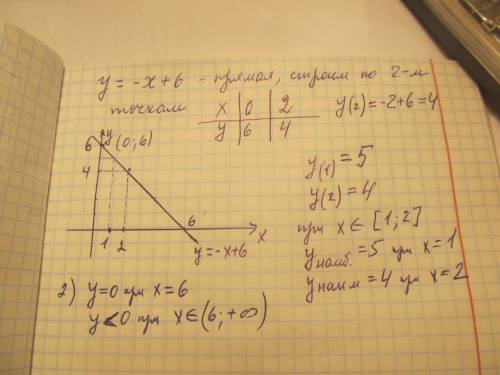 y = -x+6 - прямая, строим по 2-м
точкам
x 0 2
y 6 4
y(2) = -2+6 = 4
y
6 (0;6)
4
1 2 6 x
y = -x+6
y(1) = 5
y(2) = 4
при x ∈ [1;2]
yнаиб. = 5 при x = 1
yнаим = 4 при x = 2
2) y=0 при x=6
y<0 при x∈(6;+∞)